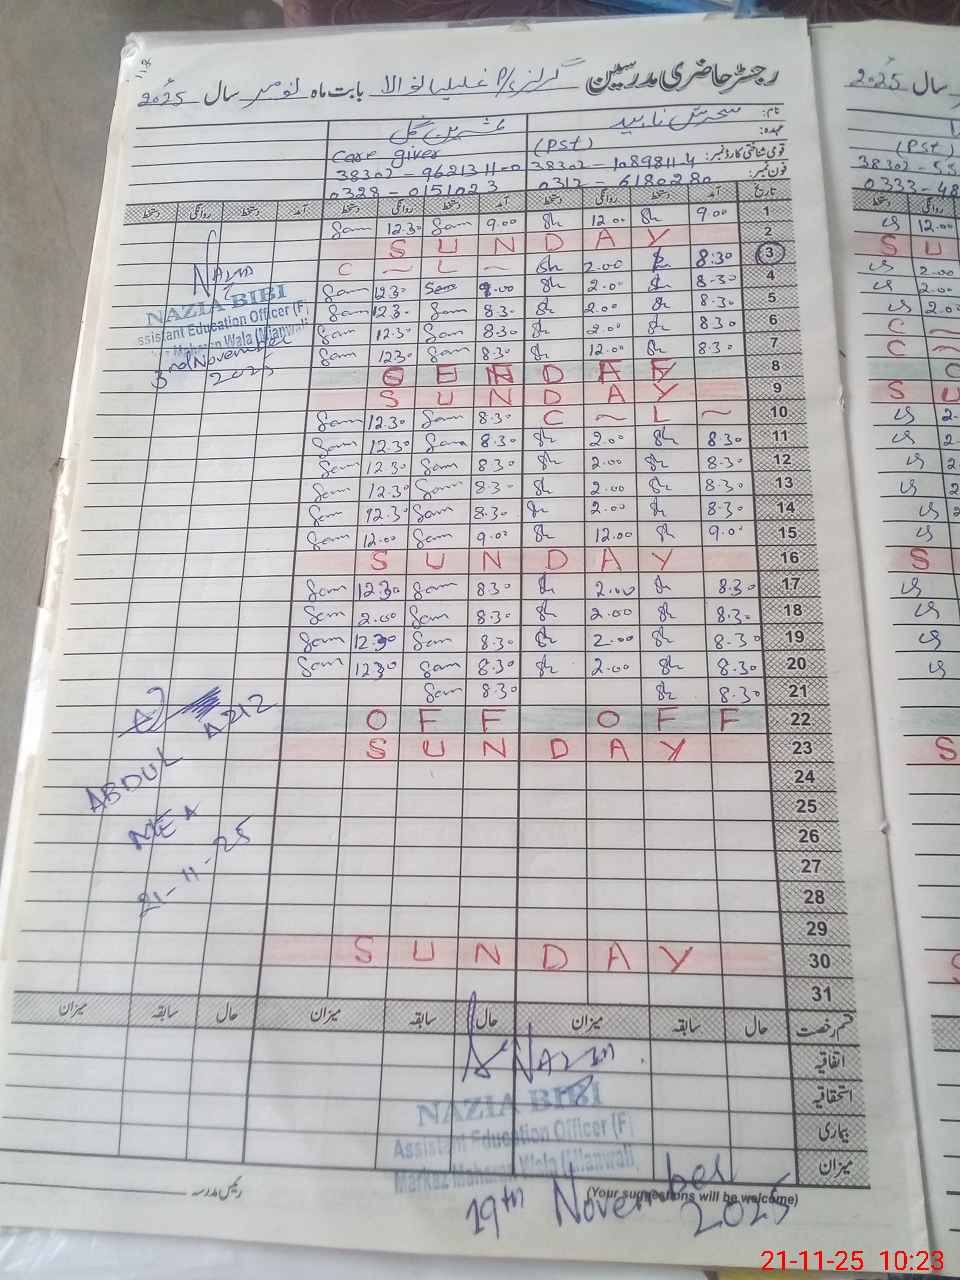 رجسٹر حاضری مدرسین گرلز P/S بابت ماہ نومبر سال 2025ء
نام: سحرش ناہید
عہدہ: (PST) Care giver
قومی شناختی کارڈ نمبر: 38302-1089811-4 38302-9621311-0
فون نمبر: 0317-6180280 0328-0151023
تاریخ آمد دستخط روانگی دستخط آمد دستخط روانگی دستخط آمد دستخط روانگی دستخط
1 9.00 Sh 12.00 Sh 9.00 Sam 12.30 Sam
2 S U N D A Y
3 8.30 Sh 2.00 Sh C ~ L ~
4 8.30 Sh 2.00 Sh 9.00 Sam 12.30 Sam
5 8.30 Sh 2.00 Sh 8.30 Sam 12.30 Sam
6 8.30 Sh 2.00 Sh 8.30 Sam 12.30 Sam
7 8.30 Sh 12.00 Sh 8.30 Sam 12.30 Sam
8
9 S U N D A Y
10 C ~ L ~ 8.30 Sam 12.30 Sam
11 8.30 Sh 2.00 Sh 8.30 Sam 12.30 Sam
12 8.30 Sh 2.00 Sh 8.30 Sam 12.30 Sam
13 8.30 Sh 2.00 Sh 8.30 Sam 12.30 Sam
14 8.30 Sh 2.00 Sh 8.30 Sam 12.30 Sam
15 9.00 Sh 12.00 Sh 9.00 Sam 12.00 Sam
16 S U N D A Y
17 8.30 Sh 2.00 Sh 8.30 Sam 12.30 Sam
18 8.30 Sh 2.00 Sh 8.30 Sam 2.00 Sam
19 8.30 Sh 2.00 Sh 8.30 Sam 12.30 Sam
20 8.30 Sh 2.00 Sh 8.30 Sam 12.30 Sam
21 8.30 Sh 8.30 Sam
22 O F F O F F
23 S U N D A Y
24
25
26
27
28
29
30 S U N D A Y
31
قسم رخصت حال سابقہ میزان حال سابقہ میزان حال سابقہ میزان
اتفاقیہ
استحقاقیہ
بیماری
میزان
رئیس مدرسہ
(Your suggestions will be welcome)
Nazia
NAZIA BIBI
Assistant Education Officer (F)
Markaz Maharan Wala (Mianwali)
3rd November
2025
ABDUL AZIZ
MEA
21-11-25
Nazia
NAZIA BIBI
Assistant Education Officer (F)
Markaz Maharan Wala (Mianwali)
19th November
2025
2025ء سال
(PST)
38302-55
0333-48
21-11-25 10:23